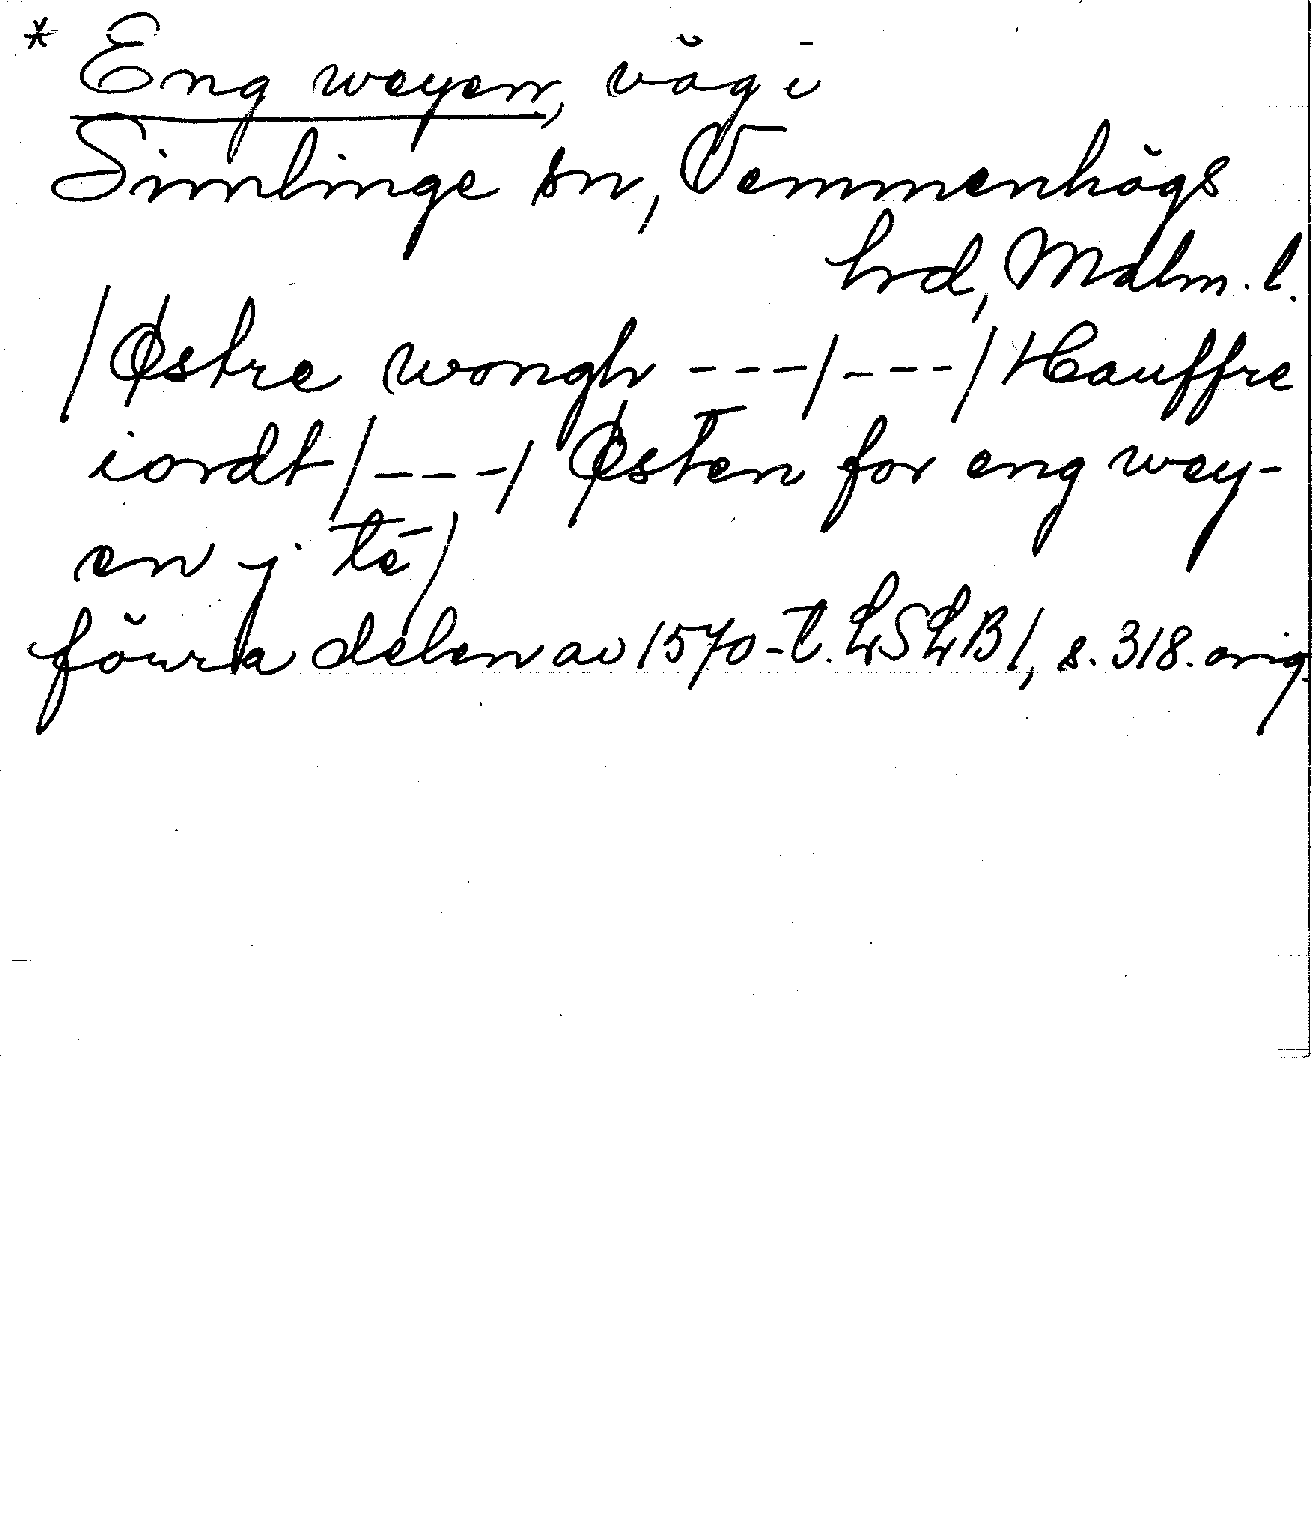 * Eng weyen, väg i
Simlinge sn, Vemmenhögs
hrd, Malm. l.
/Østre wongh ---/---/Hauffre
iordt/---/ Østen for eng wey-
en j tē/
förra delen av 1570-t. LSLB1, s. 318. orig.